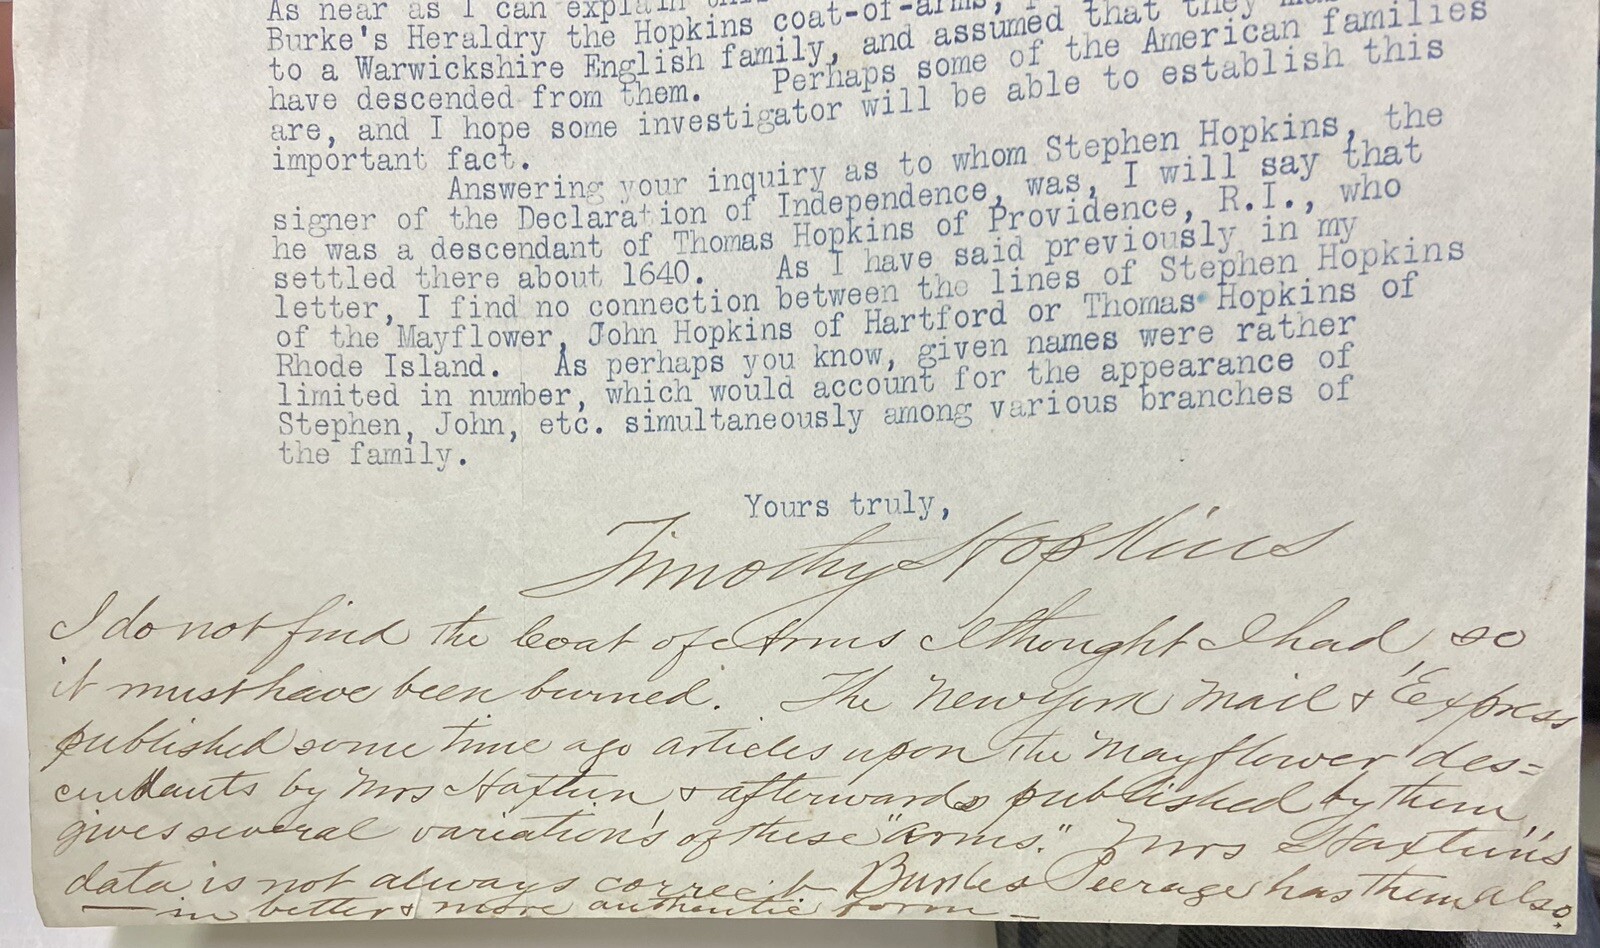 As near as I can explain
Burke's Heraldry the Hopkins coat-of-arms,
to a Warwickshire English family, and assumed that they
have descended from them. Perhaps some of the American families
are, and I hope some investigator will be able to establish this
important fact.
Answering your inquiry as to whom Stephen Hopkins, the
signer of the Declaration of Independence, was, I will say that
he was a descendant of Thomas Hopkins of Providence, R.I., who
settled there about 1640. As I have said previously in my
letter, I find no connection between the lines of Stephen Hopkins
of the Mayflower, John Hopkins of Hartford or Thomas Hopkins of
Rhode Island. As perhaps you know, given names were rather
limited in number, which would account for the appearance of
Stephen, John, etc. simultaneously among various branches of
the family.
Yours truly,
Timothy Hopkins
I do not find the Coat of Arms I thought I had, so
it must have been burned. The New York Mail & Express
published some time ago articles upon the Mayflower des=
cendants by Mrs & afterwards published by them
gives several variations of these "arms." Mrs
data is not always correct Burkes Peerage has them also,
— in better & more authentic form —